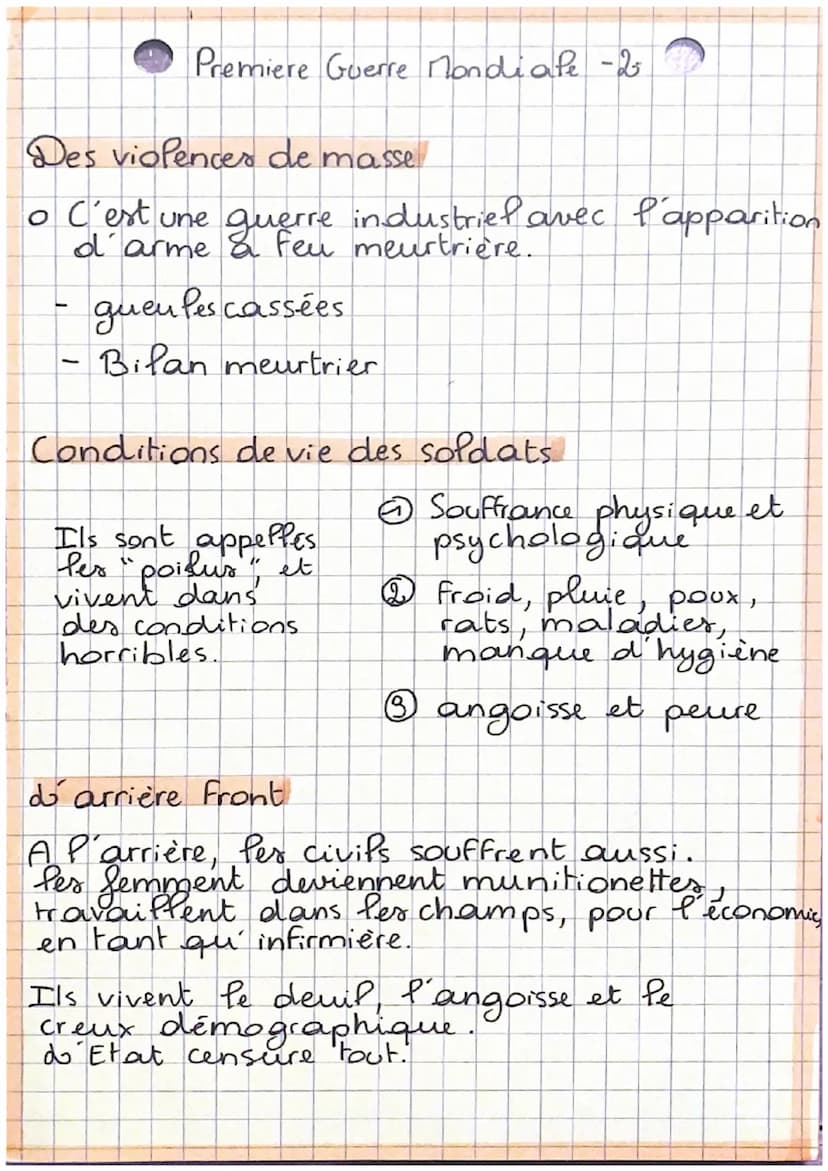 Premiere Guerre Mondiale -2
Des violences de masse
o C'est une guerre industriel avec l'apparition
d'arme à feu meurtrière.
- gueules cassées
- Bilan meurtrier
Conditions de vie des soldats
Ils sont appelles
les "poilus", et
vivent dans
des conditions
horribles.
① Souffrance physique et
psychologique
② froid, pluie, poux,
rats, maladies,
manque d'hygiène
③ angoisse et peure
L'arrière front
A l'arrière, les civils souffrent aussi.
les femment deviennent munitionettes,
travaillent dans les champs, pour l'économie,
en tant qu'infirmière.
Ils vivent le deuil, l'angoisse et le
creux démographique.
L'Etat censure tout.